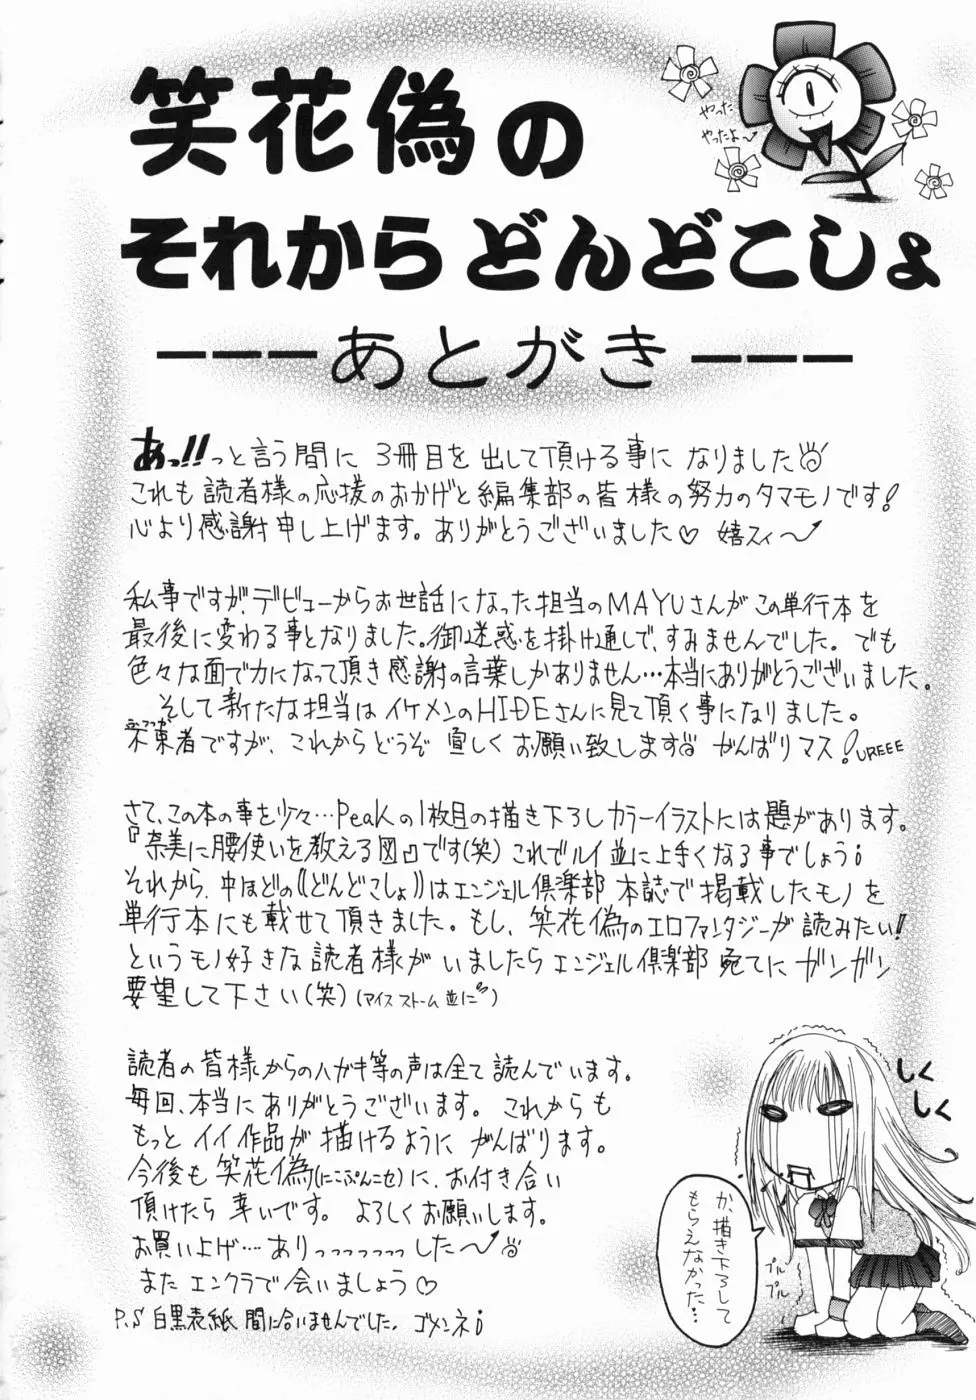 笑花偽の
やったー
やったよ〜
それからどんどこしょ
ーーーあとがきーーー
あっ!!っと言う間に 3冊目を出して頂ける事に なりました
これも読者様の応援のおかげと編集部の皆様の努力のタマモノです!
心より感謝申し上げます。ありがとうございました♡ 嬉スィ〜
私事ですが、デビューからお世話になった担当のMAYUさんがこの単行本を
最後に変わる事となりました。御迷惑を掛け通しで、すみませんでした。でも
色々な面で力になって頂き感謝の言葉しかありません…本当にありがとうございました。
そして新たな担当はイケメンのHIDEさんに見て頂く事になりました。
不束者ですが、これからどうぞ 宜しくお願い致します がんばりマス!UREEE
さて、この本の事を少々…Peakの1枚目の描き下ろしカラーイラストには題があります。
『奈美に腰使いを教える図』です(笑) これでルイ並に上手くなる事でしょう¡
それから、中ほどの((どんどこしょ))はエンジェル倶楽部 本誌で掲載したモノを
単行本にも載せて頂きました。もし、笑花偽のエロファンタジーが読みたい!!
というモノ好きな読者様がいましたらエンジェル倶楽部宛てにガンガン
要望して下さい(笑)(マイス ストーム並に)
読者の皆様からのハガキ等の声は全て読んでいます。
毎回、本当にありがとうございます。これからも
もっとイイ作品が描けるようにがんばります。
今後も笑花偽(にこぷんニセ)に、お付き合い
頂けたら幸いです。よろしくお願いします。
お買い上げ…ありっっっっっっした〜
またエンクラで会いましょう♡
P.S 白黒表紙間に合いませんでした。ゴメンネ¡
しく
しく
か、描き下ろして
もらえなかった…
プル
プル